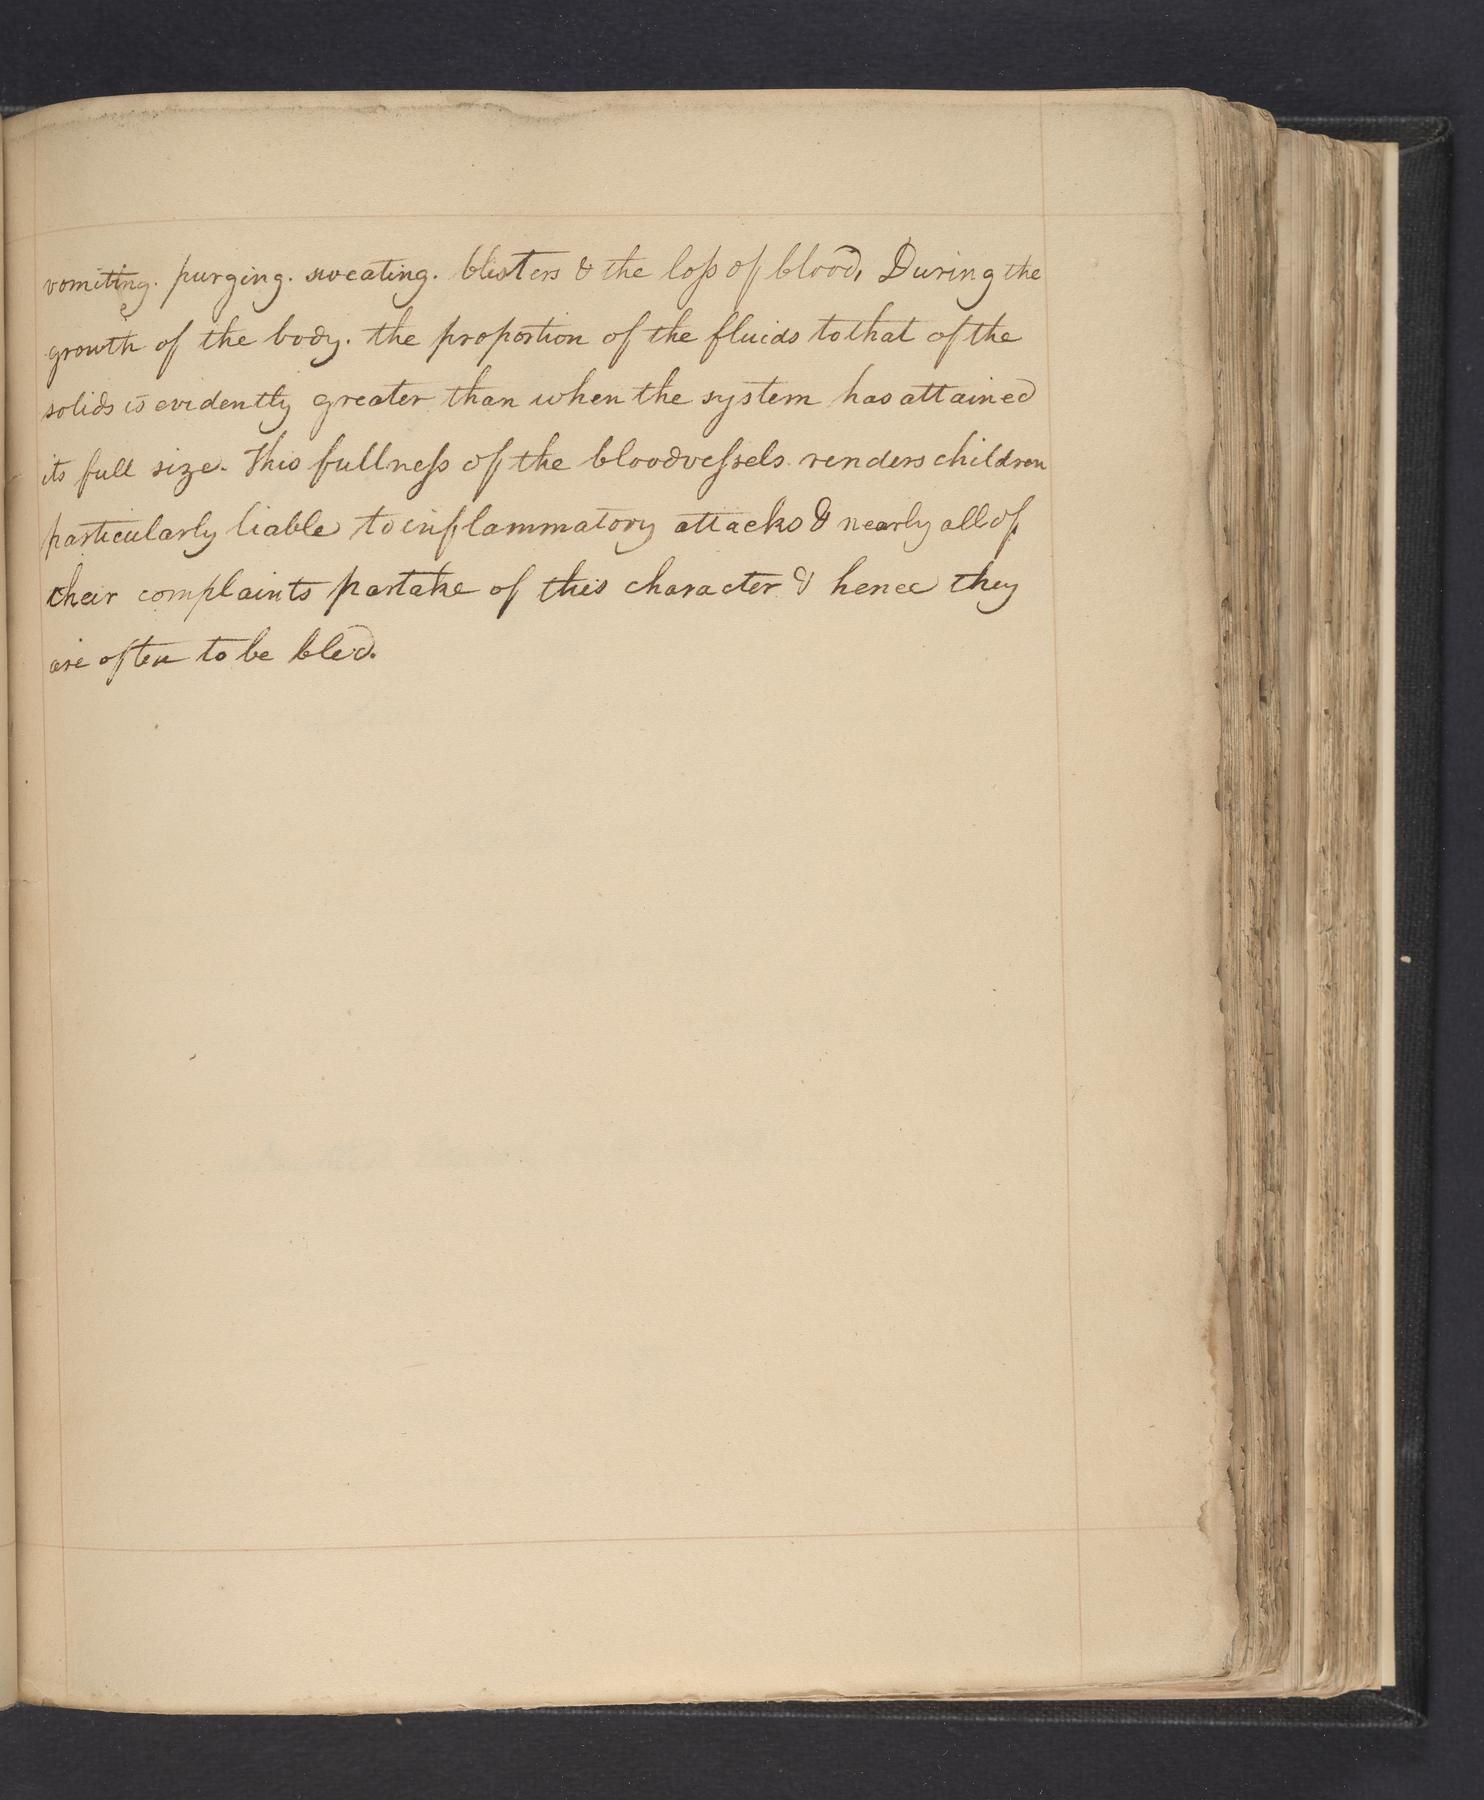 vomiting. purging. sweating. blisters & the loss of blood, During the
growth of the body. the proportion of the fluids to that of the
solids is evidently greater than when the system has attained
its full size. This fullness of the bloodvessels renders children
particularly liable to inflammatory attacks & nearly all of
their complaints partake of this character & hence they
are often to be bled.